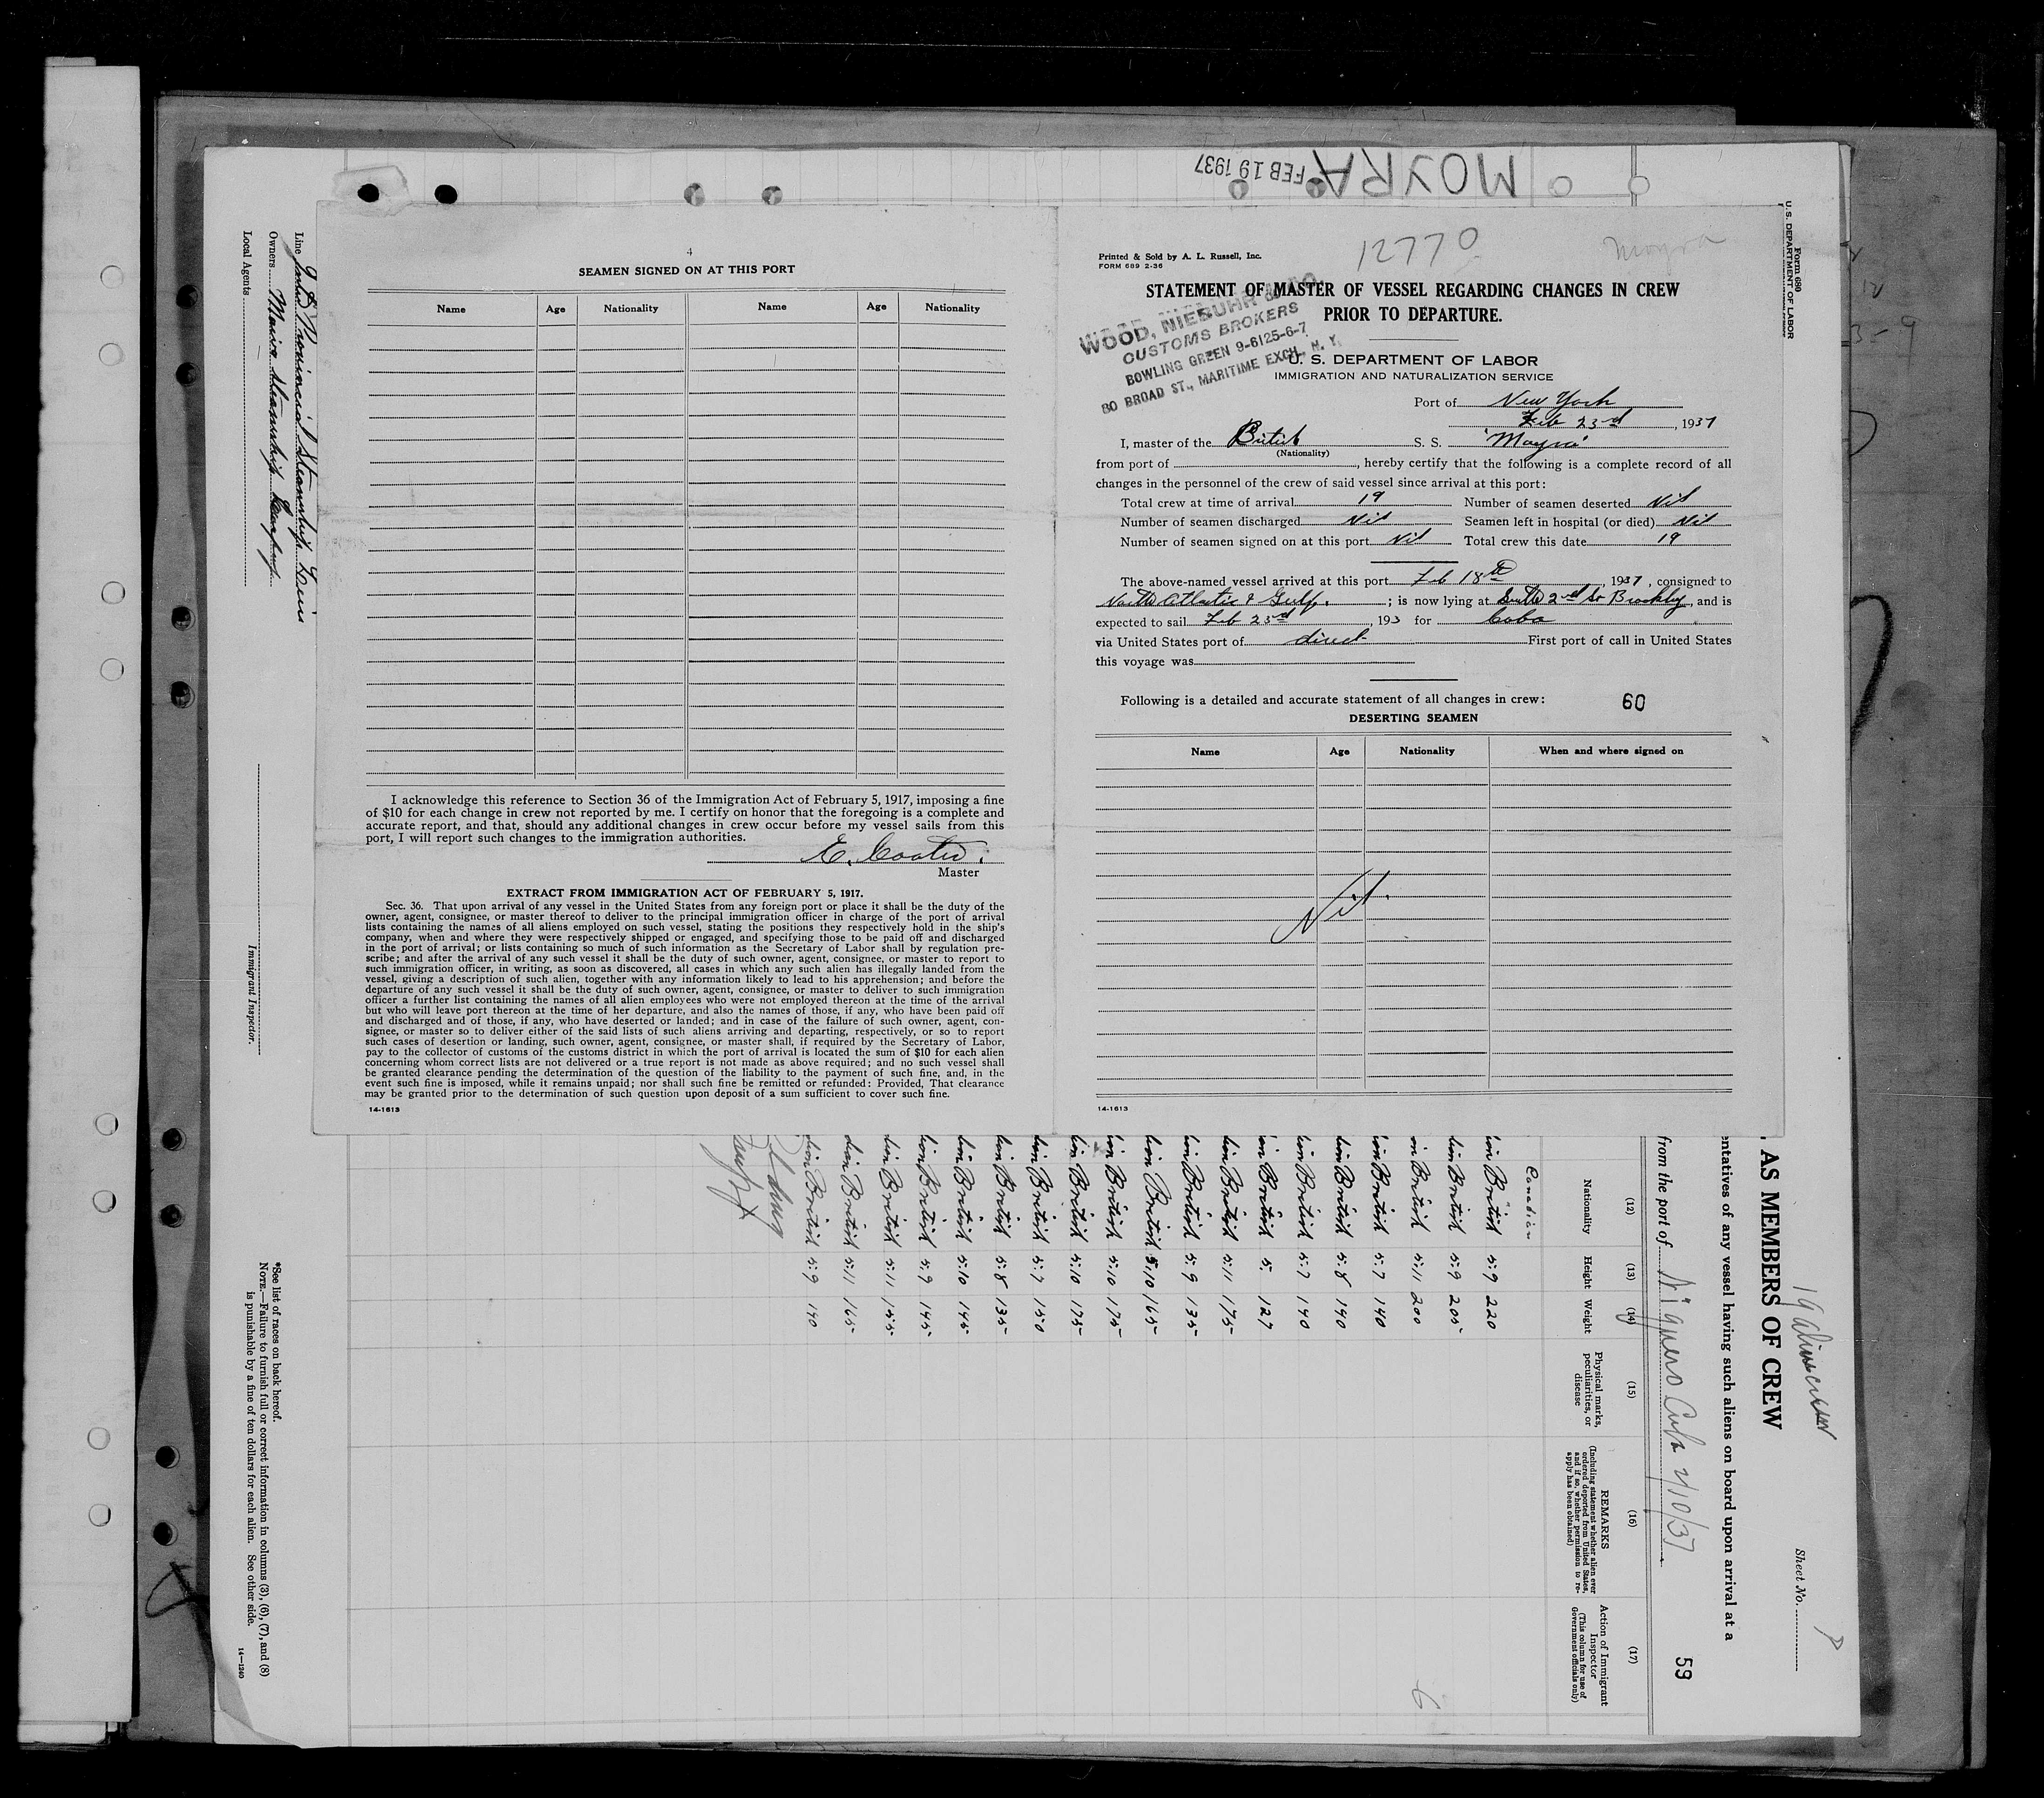 MOYRA
FEB 19 1937
4
SEAMEN SIGNED ON AT THIS PORT
Name Age Nationality Name Age Nationality
I acknowledge this reference to Section 36 of the Immigration Act of February 5, 1917, imposing a fine
of $10 for each change in crew not reported by me. I certify on honor that the foregoing is a complete and
accurate report, and that, should any additional changes in crew occur before my vessel sails from this
port, I will report such changes to the immigration authorities.
E. Coates.
Master
EXTRACT FROM IMMIGRATION ACT OF FEBRUARY 5, 1917.
Sec. 36. That upon arrival of any vessel in the United States from any foreign port or place it shall be the duty of the
owner, agent, consignee, or master thereof to deliver to the principal immigration officer in charge of the port of arrival
lists containing the names of all aliens employed on such vessel, stating the positions they respectively hold in the ship's
company, when and where they were respectively shipped or engaged, and specifying those to be paid off and discharged
in the port of arrival; or lists containing so much of such information as the Secretary of Labor shall by regulation pre-
scribe; and after the arrival of any such vessel it shall be the duty of such owner, agent, consignee, or master to report to
such immigration officer, in writing, as soon as discovered, all cases in which any such alien has illegally landed from the
vessel, giving a description of such alien, together with any information likely to lead to his apprehension; and before the
departure of any such vessel it shall be the duty of such owner, agent, consignee, or master to deliver to such immigration
officer a further list containing the names of all alien employees who were not employed thereon at the time of the arrival
but who will leave port thereon at the time of her departure, and also the names of those, if any, who have been paid off
and discharged and of those, if any, who have deserted or landed; and in case of the failure of such owner, agent, con-
signee, or master so to deliver either of the said lists of such aliens arriving and departing, respectively, or so to report
such cases of desertion or landing, such owner, agent, consignee, or master shall, if required by the Secretary of Labor,
pay to the collector of customs of the customs district in which the port of arrival is located the sum of $10 for each alien
concerning whom correct lists are not delivered or a true report is not made as above required; and no such vessel shall
be granted clearance pending the determination of the question of the liability to the payment of such fine, and, in the
event such fine is imposed, while it remains unpaid; nor shall such fine be remitted or refunded: Provided, That clearance
may be granted prior to the determination of such question upon deposit of a sum sufficient to cover such fine.
14-1613
12770
Moyra
Printed & Sold by A. L. Russell, Inc.
FORM 689 2-36
STATEMENT OF MASTER OF VESSEL REGARDING CHANGES IN CREW
PRIOR TO DEPARTURE.
WOOD, NIEBUHR & CO.
CUSTOMS BROKERS
BOWLING GREEN 9-6125-6-7
80 BROAD ST., MARITIME EXCH., N. Y.
U. S. DEPARTMENT OF LABOR
IMMIGRATION AND NATURALIZATION SERVICE
Port of New York
Feb 23rd, 1937
I, master of the British S. S. "Moyra"
(Nationality)
from port of , hereby certify that the following is a complete record of all
changes in the personnel of the crew of said vessel since arrival at this port:
Total crew at time of arrival 19 Number of seamen deserted Nil
Number of seamen discharged Nil Seamen left in hospital (or died) Nil
Number of seamen signed on at this port Nil Total crew this date 19
The above-named vessel arrived at this port Feb 18th, 1937, consigned to
North Atlantic & Gulf. ; is now lying at South 2nd St Brooklyn, and is
expected to sail Feb 23rd, 193 for Cuba
via United States port of direct First port of call in United States
this voyage was
Following is a detailed and accurate statement of all changes in crew: 60
DESERTING SEAMEN
Name Age Nationality When and where signed on
Nil.
14-1613
Form 680
U. S. DEPARTMENT OF LABOR
Sheet No.
19 alien crew
AS MEMBERS OF CREW
entatives of any vessel having such aliens on board upon arrival at a
from the port of Niquero Cuba 2/10/37
59
(12) (13) (14) (15) (16) (17)
Nationality Height Weight
Physical marks, peculiarities, or disease
REMARKS
(Including statement whether alien ever ordered deported from United States, and if so, whether permission to re-apply has been obtained)
Action of Immigrant Inspector
(This column for use of Government officials only)
Canadian
British 5.9 220
British 5.9 205
British 5.11 200
British 5.7 140
British 5.8 140
British 5.7 140
British 5. 127
British 5.11 175
British 5.9 135
British 5.10 165
British 5.10 175
British 5.10 175
British 5.7 150
British 5.8 135
British 5.10 145
British 5.9 145
British 5.11 155
British 5.11 165
British 5.9 140
Line Provincial Steamship Line
Owners Steamship Company
Local Agents
Immigrant Inspector.
*See list of races on back hereof.
NOTE.—Failure to furnish full or correct information in columns (3), (6), (7), and (8)
is punishable by a fine of ten dollars for each alien. See other side.
14-1240